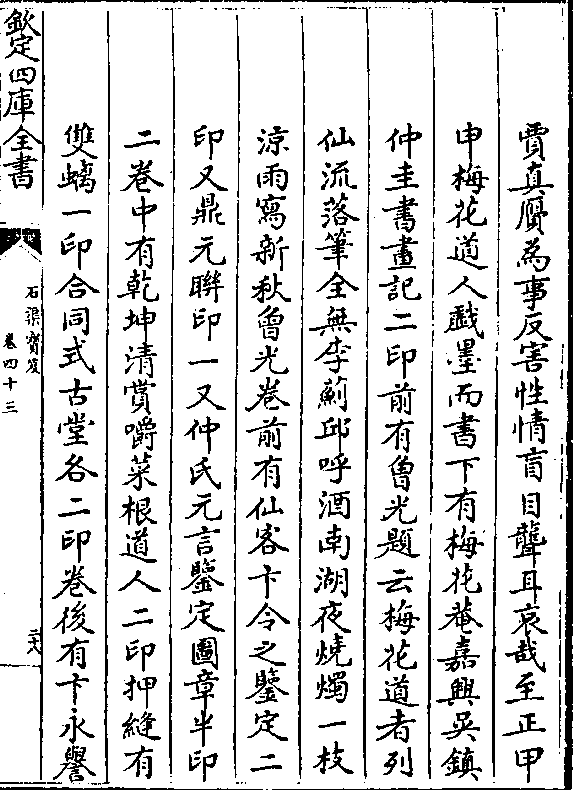 賈真贋為事反害性情盲目聾耳哀哉至正甲
申梅花道人戯墨而書下有梅花菴嘉興吳鎮
仲圭書畫記二印前有魯光題云梅花道者列
仙流落筆全無李薊邱呼酒南湖夜燒燭一枝
涼雨寫新秋曾光卷前有仙客卞令之鑒定二
印又鼎元聨印一又仲氏元言鑒定圖章半印
二卷中有乾坤清賞嚼菜根道人二印押縫有
雙螭一印合同式古堂各二印卷後有卞永譽
欽定四庫全書
石渠寶笈
卷四十三
二十八